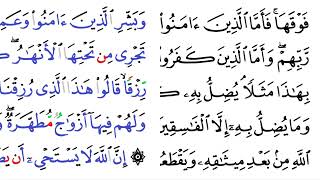 فَوْقَهَا ۚ فَأَمَّا ٱلَّذِينَ ءَامَنُوا۟
رَّبِّهِمْ ۖ وَأَمَّا ٱلَّذِينَ كَفَرُوا۟
بِهَـٰذَا مَثَلًا ۘ يُضِلُّ بِهِۦ
وَمَا يُضِلُّ بِهِۦٓ إِلَّا ٱلْفَـٰسِقِينَ
ٱللَّهِ مِنۢ بَعْدِ مِيثَـٰقِهِۦ وَيَقْطَعُ
وَبَشِّرِ ٱلَّذِينَ ءَامَنُوا۟ وَعَمِ
تَجْرِى مِن تَحْتِهَا ٱلْأَنْهَـٰرُ ۖ
رِّزْقًا ۙ قَالُوا۟ هَـٰذَا ٱلَّذِى رُزِقْنَا
وَلَهُمْ فِيهَآ أَزْوَٰجٌ مُّطَهَّرَةٌ ۖ
۞ إِنَّ ٱللَّهَ لَا يَسْتَحْىِۦٓ أَن يَض